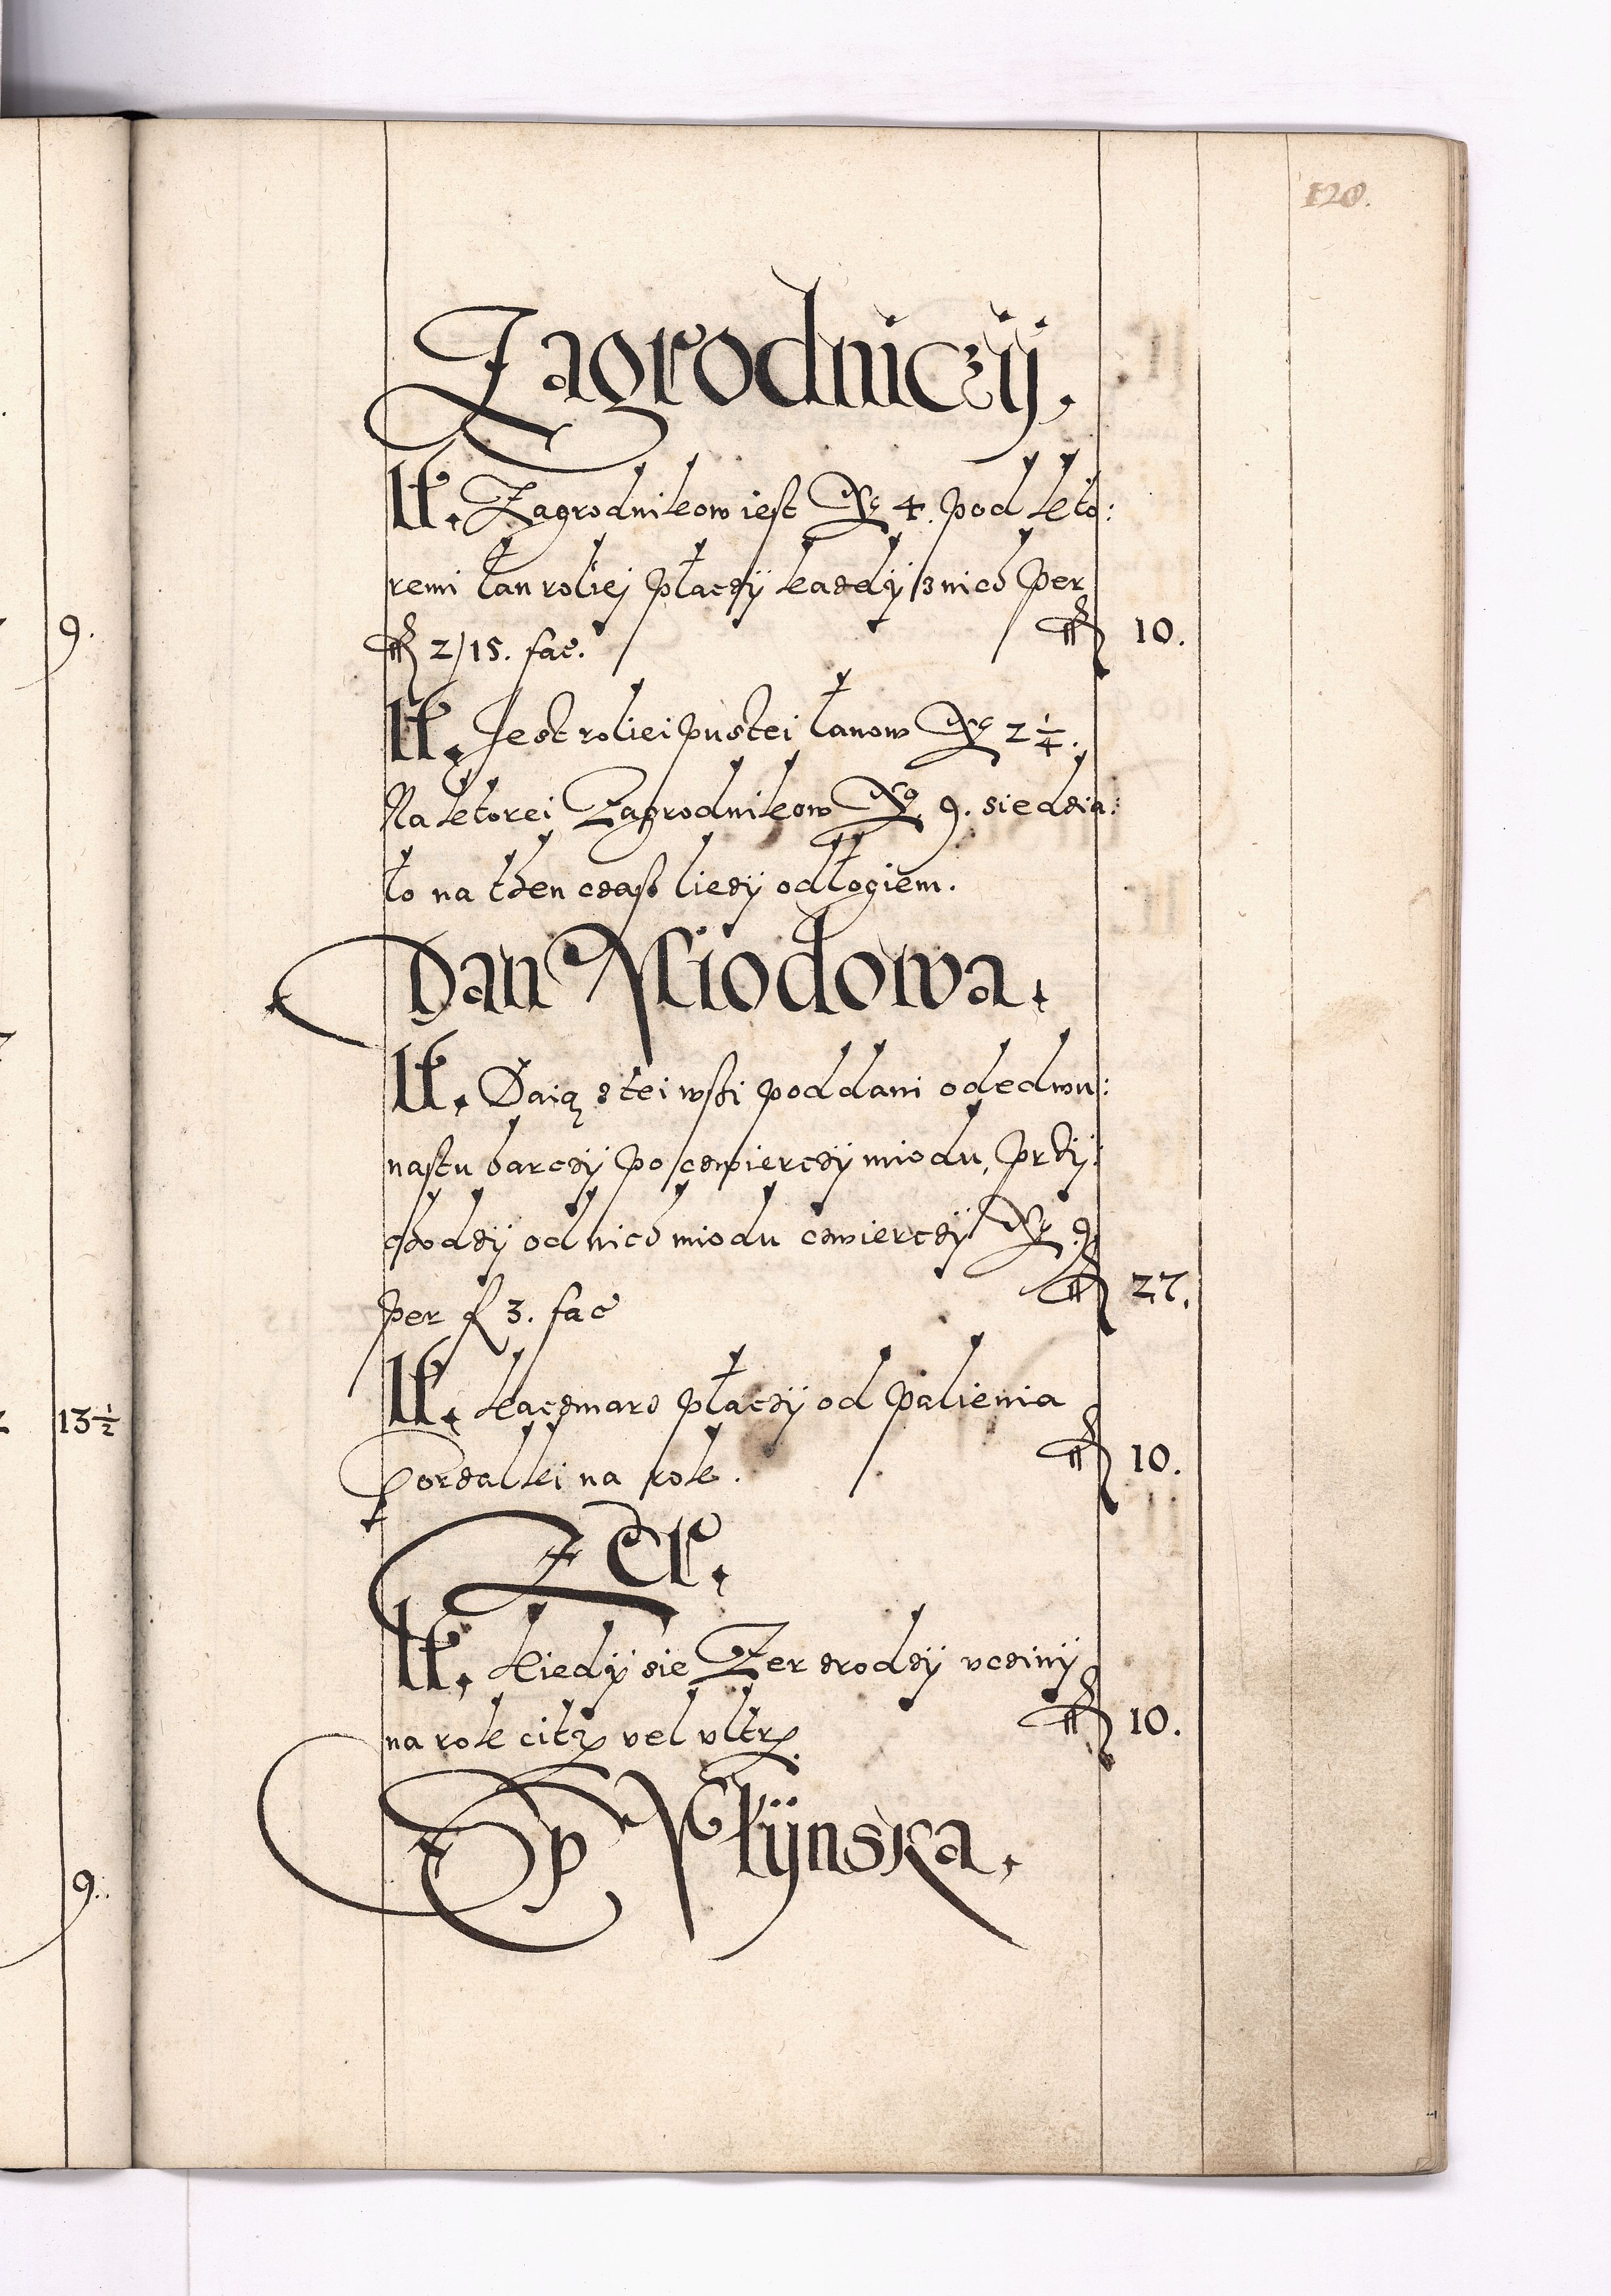 128.
Zagrodniczÿ.
It. Zagrodnikow iest No 4. pod kto:
remi łan roliej płaczÿ kazdÿ znich per
fl 2/15. fac.
fl 10.
It. Jest roliei pustei łanow No 2 1/4.
Na ktorei Zagrodnikow No 9. siedzia:
ło na then czasß liezÿ odłogiem.
Dan Miodowa.
It. Daią z tei wsßi poddani odedwu:
nastu barczÿ po czwierczÿ miodu, przÿ:
chodzÿ od nich miodu czwierczÿ No 9.
per fl 3. fac
fl 27.
It. Kaczmarz płaczÿ od palienia
Gorzalkei na rok.
fl 10.
Zer.
It. Kiedÿ sie Zer zrodzÿ vczinÿ
na rok citra vel vltra
fl 10.
Sp Młÿnska.
9.
13 1/2
9.